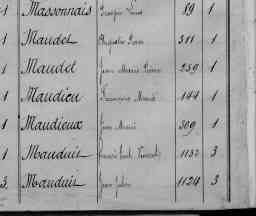 1 Massonnais 19 1
1 Maudet Auguste 311 1
1 Maudet Jean Marie Pierre 259 1
1 Maudieu Françoise Marie 144 1
1 Maudieux Jean Marie 309 1
1 Mauduit Vincent 1137 3
3 Mauduit Jean Julien 1124 3